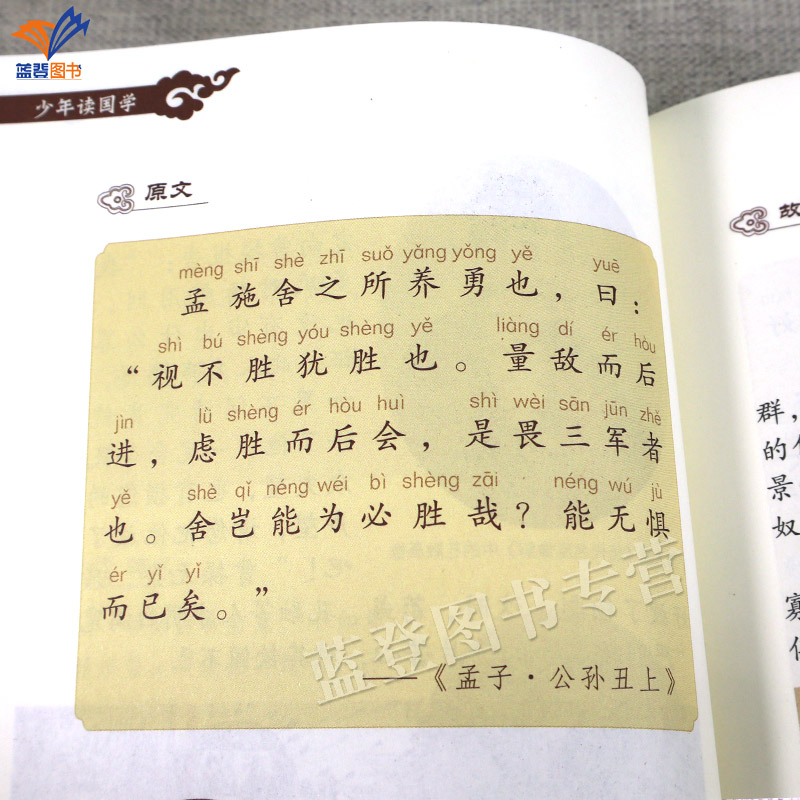 蓝登图书
少年读国学
原文
mèng shī shè zhī suǒ yǎng yǒng yě yuē
孟施舍之所养勇也，曰：
shì bú shèng yóu shèng yě liàng dí ér hòu
“视不胜犹胜也。量敌而后
jìn lǜ shèng ér hòu huì shì wèi sān jūn zhě
进，虑胜而后会，是畏三军者
yě shè qǐ néng wéi bì shèng zāi néng wú jù
也。舍岂能为必胜哉？能无惧
ér yǐ yǐ
而已矣。”
——《孟子·公孙丑上》
蓝登图书专营
故
群，
的
景
奴
寡